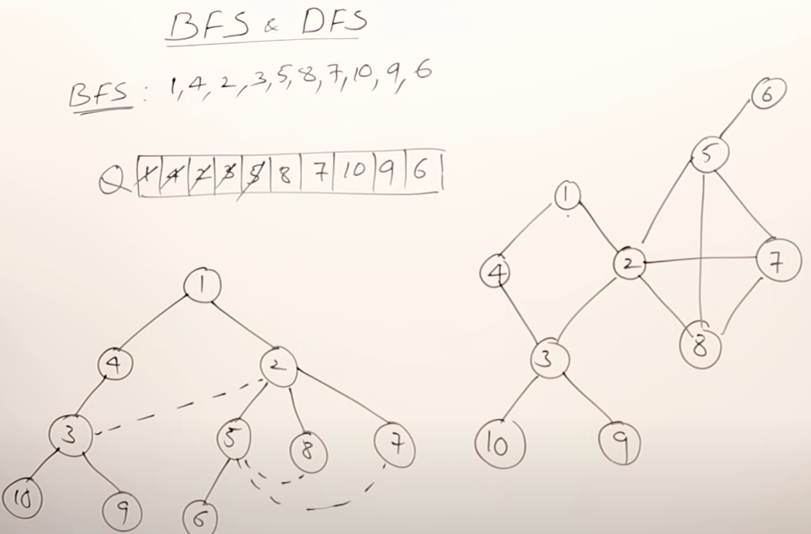 BFS & DFS
BFS : 1, 4, 2, 3, 5, 8, 7, 10, 9, 6
Q 1 4 2 3 5 8 7 10 9 6
1
4 2
3 5 8 7
10 9 6
6
5
1
4 2 7
3 8
10 9